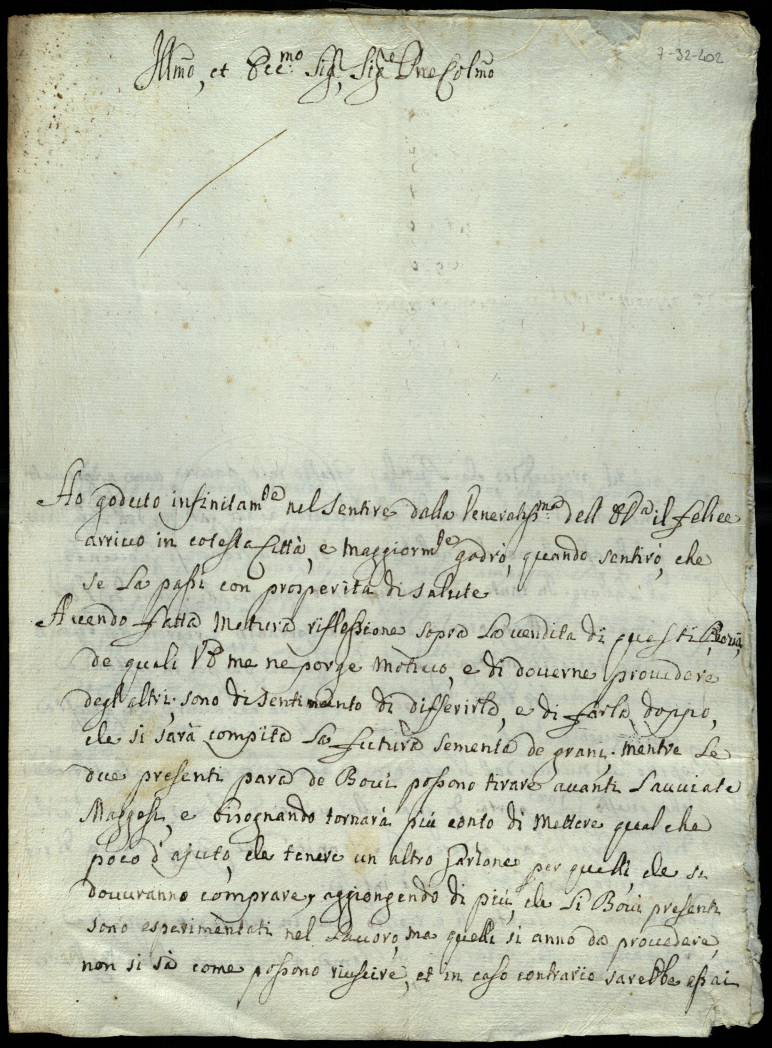 7-32-402
Illmo, et Eccmo Sigr, Sige Pne Colmo
Ho goduto infinitamte nel sentire dalla Veneratissma dell' EVa il felice
arrivo in cotesta Città, e maggiormte godrò, quando sentirò, che
se la passi con prosperità di salute
Avendo fatta mattura riflessione sopra la vendita di questi Bovi,
de quali VE me ne porge motivo, e di doverne provedere
degl'altri, sono di sentimento di differirla, e di farla doppo,
che si sarà compita la futura sementa de grani, mentre le
due presenti para de Bovi possono tirare avanti l'avviate
Maggesi, e bisognando tornarà più conto di mettere qualche
poco d'ajuto, che tenere un altro Garzone per quelli, che si
dovvranno comprare, aggiongendo di più, che li Bovi presenti
sono esperimentati nel lavoro, ma quelli si anno da provedere,
non si sà come possono riuscire, et in caso contrario sarebbe assai